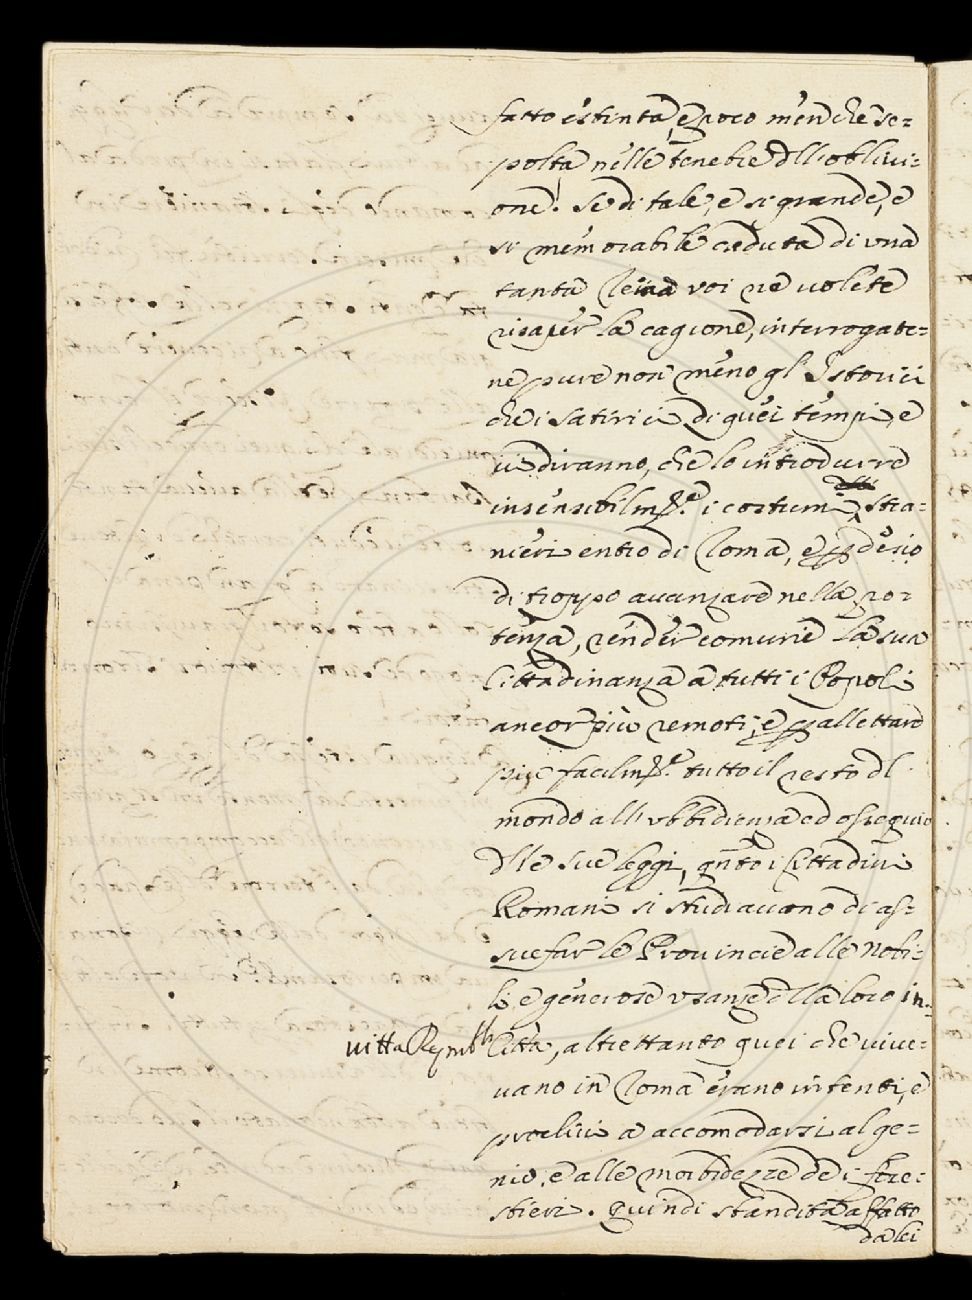 fatto estinta, e poco men che se=
polta nelle tenebre dll'oblivi=
one. Se di tale, e si grande, e
si memorabile caduta di una
tanta Reina voi ne volete
risaper la cagione, interrogate=
ne pure non meno gl'Istorici
che i Satirici di quei tempi, e
vi diranno, che lo introdurre
insensibilmte. i costumi stra=
nieri entro di Roma, e p desio
di troppo avanzare nella po=
tenza, render comune la sua
Cittadinanza a tutti i Popoli
ancor più remoti, e p allettare
più facilmte. tutto il resto dl
mondo all'ubbidienza ed ossequio
dlle sue leggi, qnto i Cittadini
Romani si studiavano di as=
suefar le Provincie alle nobi=
li, e generose usanze dlla loro in=
vitta Repubb
Città, altrettanto quei che vive=
vano in Roma erano intenti, e
proclivi a accomodarsi al ge=
nio, e alle morbidezze de i fore=
stieri. Quindi sbandita affatto
da lei